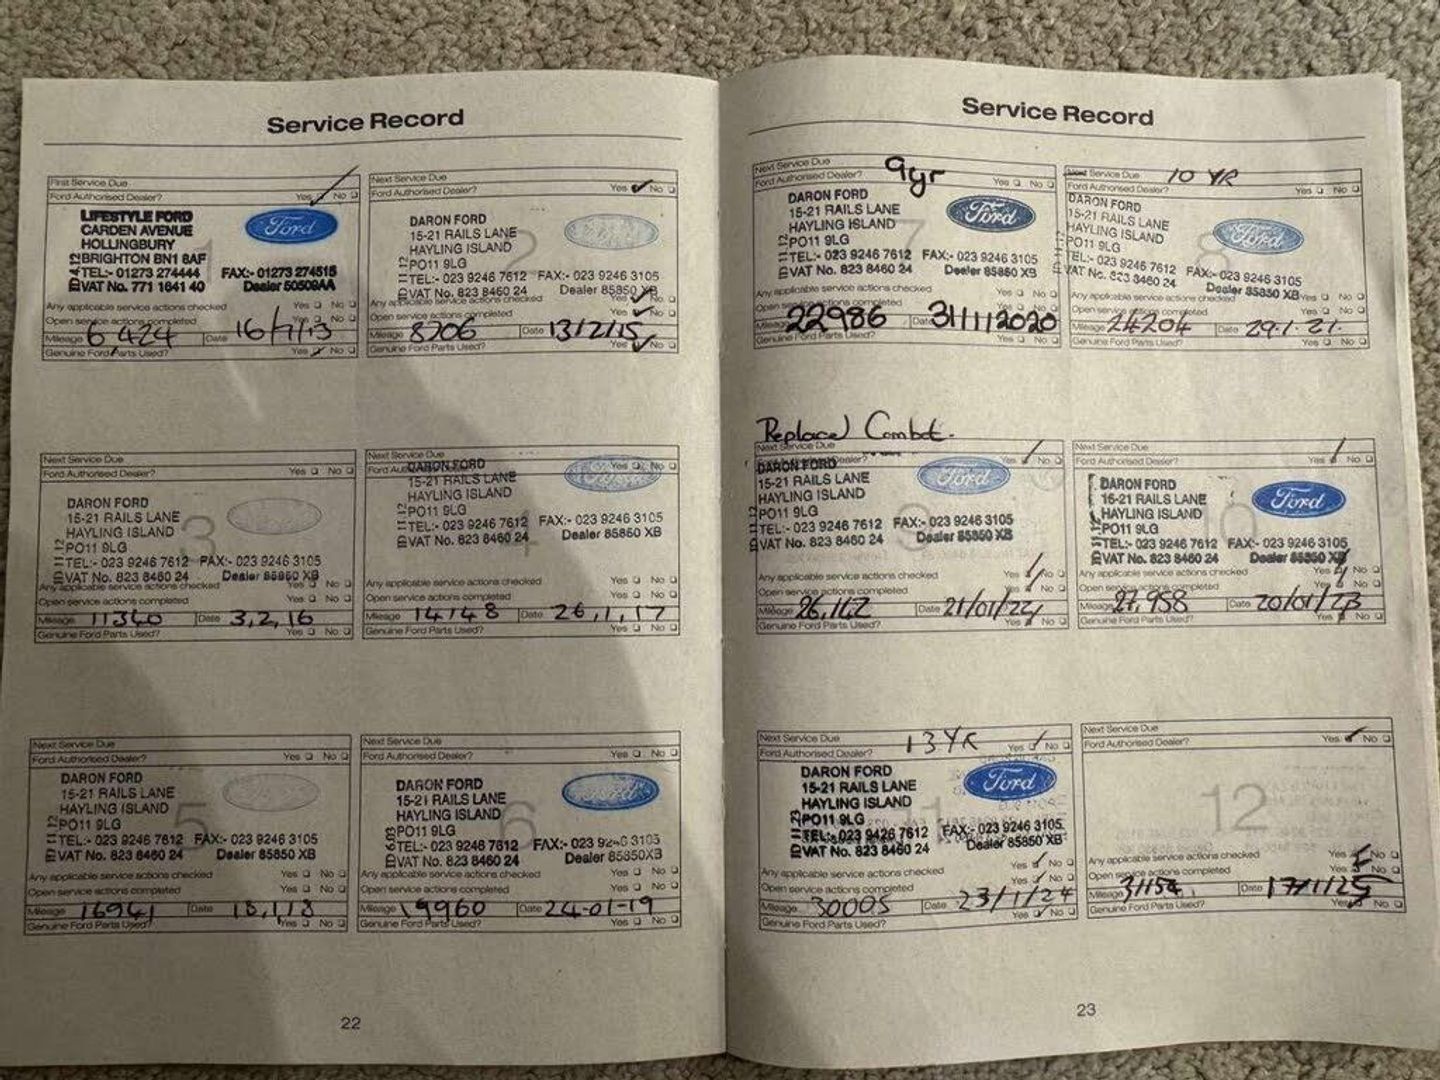 Service Record
First Service Due
Ford Authorised Dealer? Yes No
LIFESTYLE FORD
CARDEN AVENUE
HOLLINGBURY
BRIGHTON BN1 8AF
TEL:- 01273 274444 FAX:- 01273 274515
VAT No. 771 1641 40 Dealer 50509AA
Ford
1
Any applicable service actions checked Yes No
Open service actions completed Yes No
Mileage 6424 Date 16/7/13
Genuine Ford Parts Used? Yes No
Next Service Due
Ford Authorised Dealer? Yes No
DARON FORD
15-21 RAILS LANE
HAYLING ISLAND
PO11 9LG
TEL:- 023 9246 7612 FAX:- 023 9246 3105
VAT No. 823 8460 24 Dealer 85850 XB
2
Any applicable service actions checked Yes No
Open service actions completed Yes No
Mileage 8206 Date 13/2/15
Genuine Ford Parts Used? Yes No
Next Service Due
Ford Authorised Dealer? Yes No
DARON FORD
15-21 RAILS LANE
HAYLING ISLAND
PO11 9LG
TEL:- 023 9246 7612 FAX:- 023 9246 3105
VAT No. 823 8460 24 Dealer 85850 XB
3
Any applicable service actions checked Yes No
Open service actions completed Yes No
Mileage 11340 Date 3,2,16
Genuine Ford Parts Used? Yes No
Next Service Due
Ford Authorised Dealer? Yes No
DARON FORD
15-21 RAILS LANE
HAYLING ISLAND
PO11 9LG
TEL:- 023 9246 7612 FAX:- 023 9246 3105
VAT No. 823 8460 24 Dealer 85850 XB
4
Any applicable service actions checked Yes No
Open service actions completed Yes No
Mileage 14148 Date 26,1,17
Genuine Ford Parts Used? Yes No
Next Service Due
Ford Authorised Dealer? Yes No
DARON FORD
15-21 RAILS LANE
HAYLING ISLAND
PO11 9LG
TEL:- 023 9246 7612 FAX:- 023 9246 3105
VAT No. 823 8460 24 Dealer 85850 XB
5
Any applicable service actions checked Yes No
Open service actions completed Yes No
Mileage 16941 Date
Genuine Ford Parts Used? Yes No
Next Service Due
Ford Authorised Dealer? Yes No
DARON FORD
15-21 RAILS LANE
HAYLING ISLAND
PO11 9LG
TEL:- 023 9246 7612 FAX:- 023 9246 3105
VAT No. 823 8460 24 Dealer 85850XB
Ford
6
Any applicable service actions checked Yes No
Open service actions completed Yes No
Mileage 19960 Date 24-01-19
Genuine Ford Parts Used? Yes No
22
Service Record
Next Service Due 9yr
Ford Authorised Dealer? Yes No
DARON FORD
15-21 RAILS LANE
HAYLING ISLAND
PO11 9LG
TEL:- 023 9246 7612 FAX:- 023 9246 3105
VAT No. 823 8460 24 Dealer 85850 XB
Ford
7
Any applicable service actions checked Yes No
Open service actions completed Yes No
Mileage 22986 Date 31/1/2020
Genuine Ford Parts Used? Yes No
Next Service Due 10 YR
Ford Authorised Dealer? Yes No
DARON FORD
15-21 RAILS LANE
HAYLING ISLAND
PO11 9LG
TEL:- 023 9246 7612 FAX:- 023 9246 3105
VAT No. 823 8460 24 Dealer 85850 XB
Ford
8
Any applicable service actions checked Yes No
Open service actions completed Yes No
Mileage 24204 Date 29.1.21.
Genuine Ford Parts Used? Yes No
Replaced
Next Service Due
Ford Authorised Dealer? Yes No
DARON FORD
15-21 RAILS LANE
HAYLING ISLAND
PO11 9LG
TEL:- 023 9246 7612 FAX:- 023 9246 3105
VAT No. 823 8460 24 Dealer 85850 XB
Ford
9
Any applicable service actions checked Yes No
Open service actions completed Yes No
Mileage 26,162 Date 21/01/22
Genuine Ford Parts Used? Yes No
Next Service Due
Ford Authorised Dealer? Yes No
DARON FORD
15-21 RAILS LANE
HAYLING ISLAND
PO11 9LG
TEL:- 023 9246 7612 FAX:- 023 9246 3105
VAT No. 823 8460 24 Dealer 85850 XB
Ford
10
Any applicable service actions checked Yes No
Open service actions completed Yes No
Mileage 27,958 Date 20/01/23
Genuine Ford Parts Used? Yes No
Next Service Due 13 YR
Ford Authorised Dealer? Yes No
DARON FORD
15-21 RAILS LANE
HAYLING ISLAND
PO11 9LG
TEL:- 023 9426 7612 FAX:- 023 9246 3105
VAT No. 823 8460 24 Dealer 85850 XB
Ford
Any applicable service actions checked Yes No
Open service actions completed Yes No
Mileage 30005 Date 23/1/24
Genuine Ford Parts Used? Yes No
Next Service Due
Ford Authorised Dealer? Yes No
12
Any applicable service actions checked Yes No
Open service actions completed Yes No
Mileage 31154 Date 17/1/25
Genuine Ford Parts Used? Yes No
23